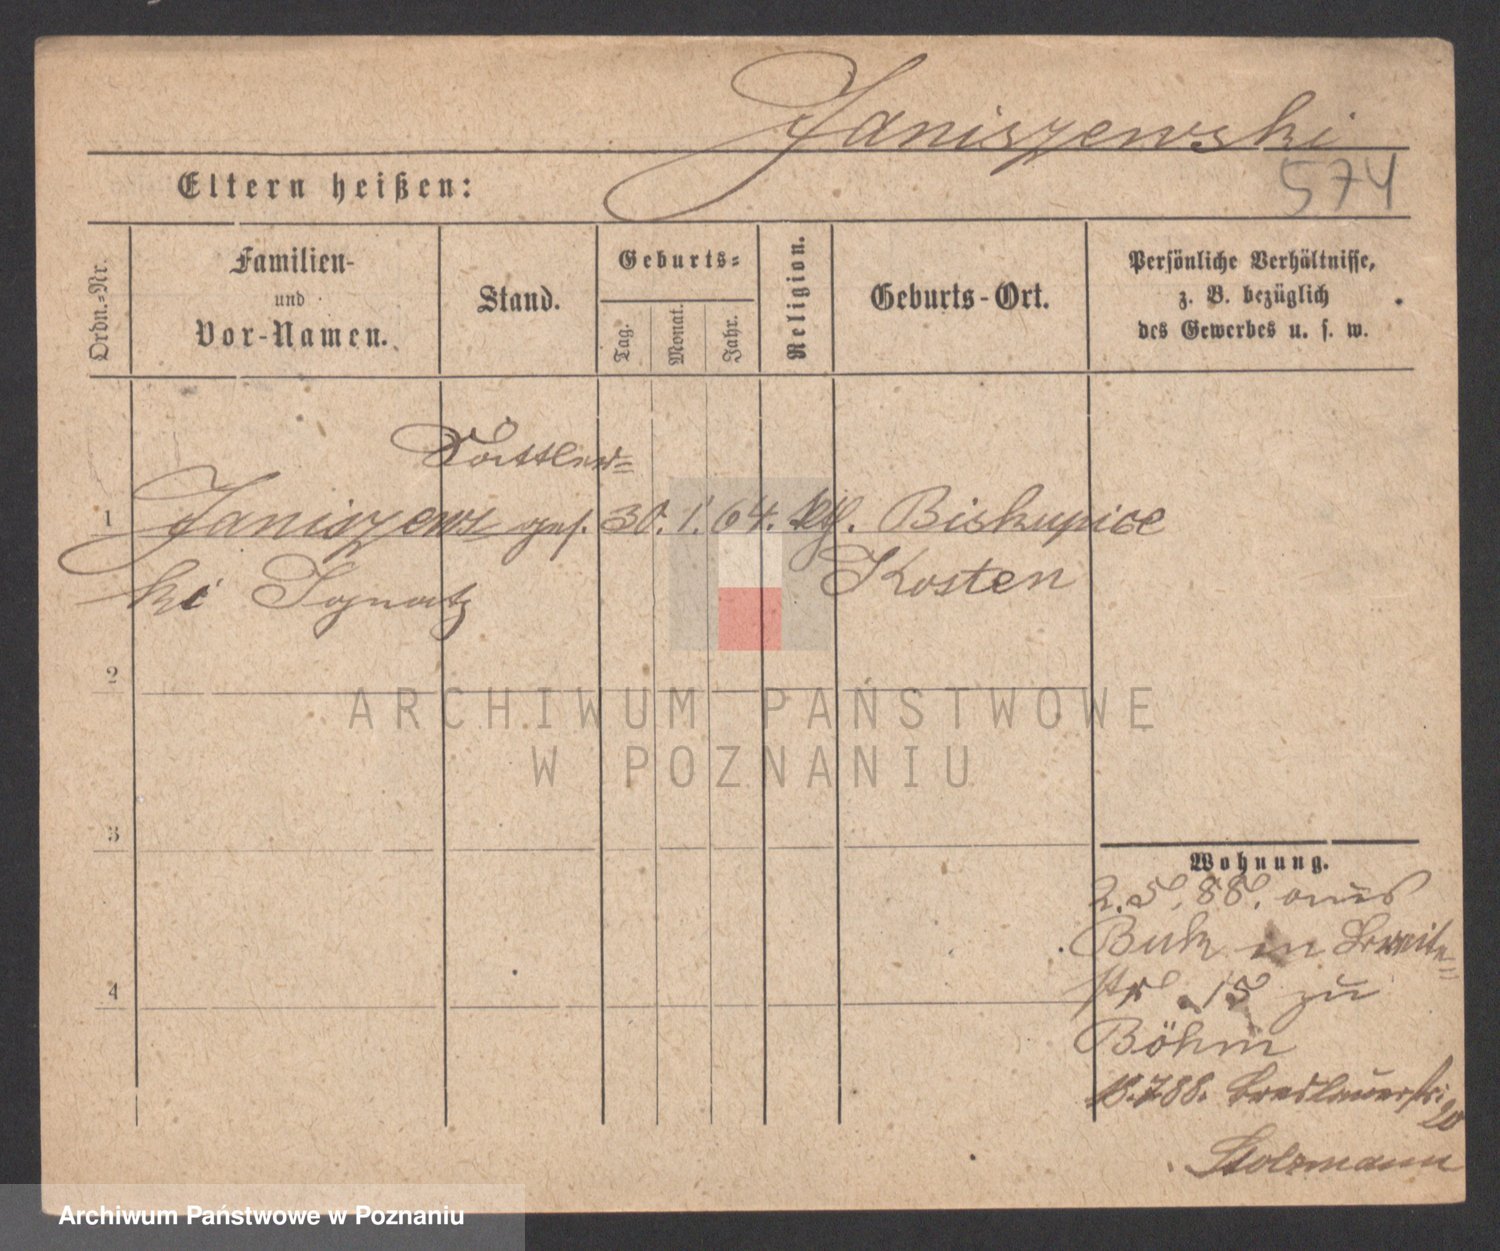 Janiszewski
574
Eltern heißen:
Ordn.-Nr.
Familien-
und
Vor-Namen.
Stand.
Geburts-
Tag.
Monat.
Jahr.
Religion.
Geburts-Ort.
Persönliche Verhältnisse,
z. B. bezüglich
des Gewerbes u. s. w.
Sattler=
1 Janiszews ges. 30. 1. 64. kth. Biskupice
ki Ignatz Kosten
2
3
4
Wohnung.
2.5.88. aus
Buk in Breite=
str. 15 zu
Böhm
Breslauerstr.
20
Stolzmann
ARCHIWUM PAŃSTWOWE
W POZNANIU
Archiwum Państwowe w Poznaniu